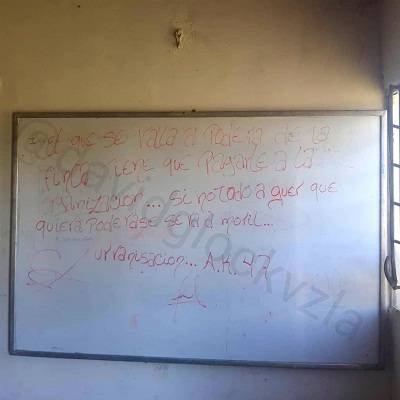 el que se valla a poderar de la
finca tiene que pagarle a la
organizacion... si no todo a quer que
quiera poderase sera a movil...
urranisacion... A.K. 47
@davidglockvzla